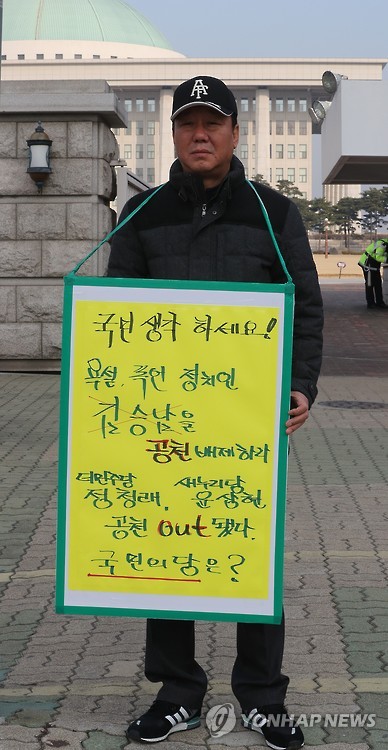 국민 생각 하세요!
욕설, 폭언 정치인
주승남을
공천 배제하라
더민주당 새누리당
정청래, 윤상현
공천 out 됐다.
국민의당은?
YONHAP NEWS